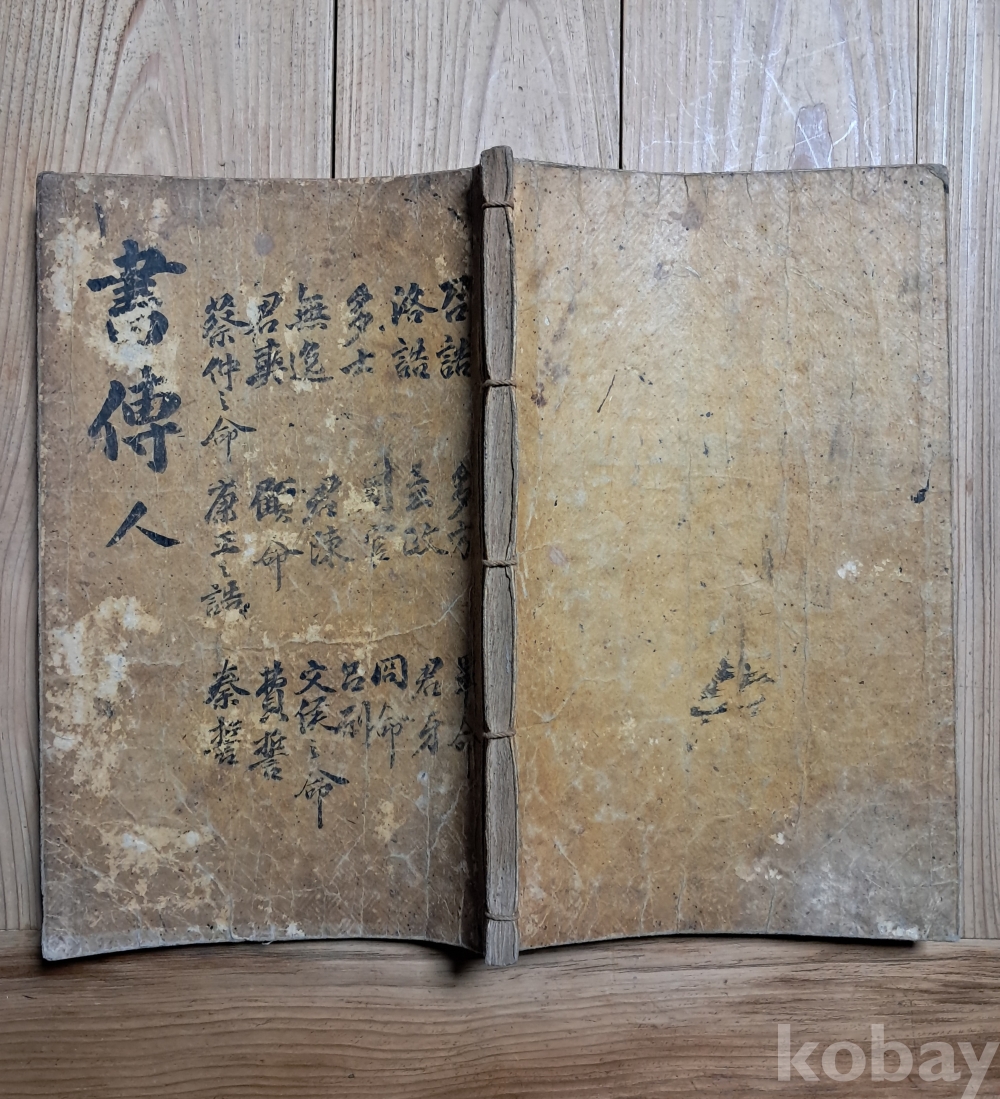 書傳 人
召誥
洛誥
多士
無逸
君奭
蔡仲之命
多方
立政
周官
君陳
顧命
康王之誥
畢命
君牙
冏命
呂刑
文侯之命
費誓
秦誓
kobay